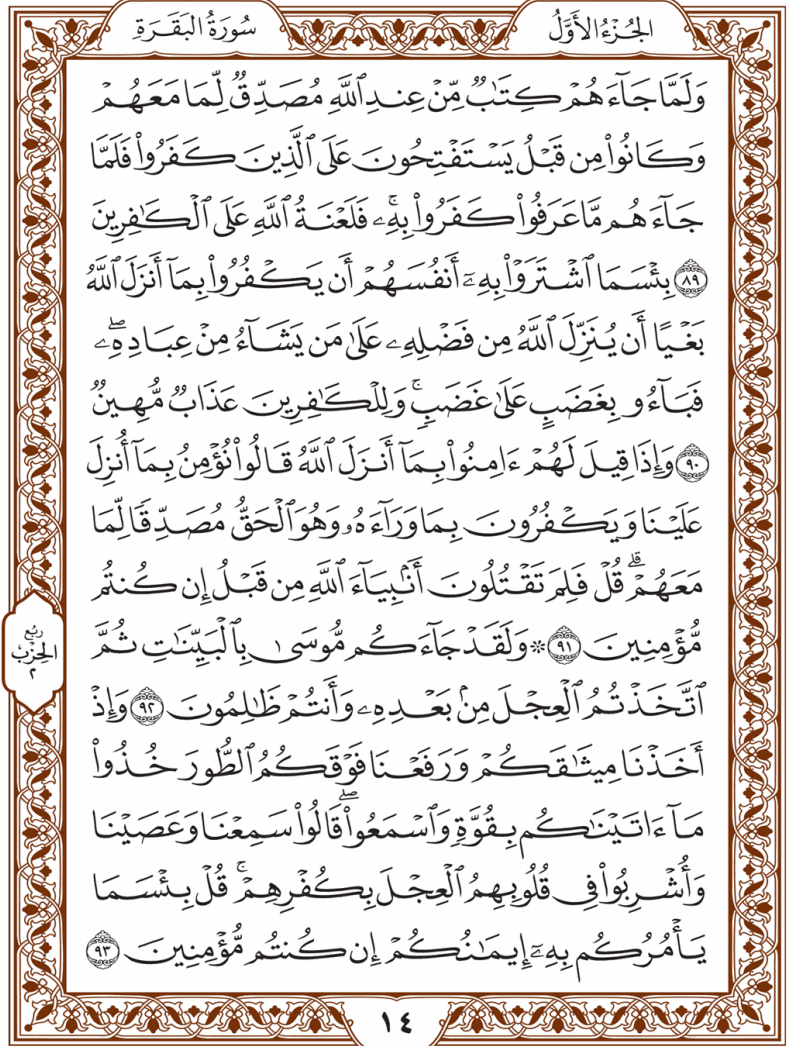 الجُزْءُ الأَوَّلُ
سُورَةُ البَقَرَةِ
وَلَمَّا جَآءَهُمْ كِتَٰبٌ مِّنْ عِندِ ٱللَّهِ مُصَدِّقٌ لِّمَا مَعَهُمْ
وَكَانُوا۟ مِن قَبْلُ يَسْتَفْتِحُونَ عَلَى ٱلَّذِينَ كَفَرُوا۟ فَلَمَّا
جَآءَهُم مَّا عَرَفُوا۟ كَفَرُوا۟ بِهِۦۚ فَلَعْنَةُ ٱللَّهِ عَلَى ٱلْكَٰفِرِينَ
٨٩ بِئْسَمَا ٱشْتَرَوْا۟ بِهِۦٓ أَنفُسَهُمْ أَن يَكْفُرُوا۟ بِمَآ أَنزَلَ ٱللَّهُ
بَغْيًا أَن يُنَزِّلَ ٱللَّهُ مِن فَضْلِهِۦ عَلَىٰ مَن يَشَآءُ مِنْ عِبَادِهِۦۖ
فَبَآءُو بِغَضَبٍ عَلَىٰ غَضَبٍۚ وَلِلْكَٰفِرِينَ عَذَابٌ مُّهِينٌ
٩٠ وَإِذَا قِيلَ لَهُمْ ءَامِنُوا۟ بِمَآ أَنزَلَ ٱللَّهُ قَالُوا۟ نُؤْمِنُ بِمَآ أُنزِلَ
عَلَيْنَا وَيَكْفُرُونَ بِمَا وَرَآءَهُۥ وَهُوَ ٱلْحَقُّ مُصَدِّقًا لِّمَا
مَعَهُمْۗ قُلْ فَلِمَ تَقْتُلُونَ أَنۢبِيَآءَ ٱللَّهِ مِن قَبْلُ إِن كُنتُم
مُّؤْمِنِينَ ٩١ ۞ وَلَقَدْ جَآءَكُم مُّوسَىٰ بِٱلْبَيِّنَٰتِ ثُمَّ
ٱتَّخَذْتُمُ ٱلْعِجْلَ مِنۢ بَعْدِهِۦ وَأَنتُمْ ظَٰلِمُونَ ٩٢ وَإِذْ
أَخَذْنَا مِيثَٰقَكُمْ وَرَفَعْنَا فَوْقَكُمُ ٱلطُّورَ خُذُوا۟
مَآ ءَاتَيْنَٰكُم بِقُوَّةٍ وَٱسْمَعُوا۟ۖ قَالُوا۟ سَمِعْنَا وَعَصَيْنَا
وَأُشْرِبُوا۟ فِى قُلُوبِهِمُ ٱلْعِجْلَ بِكُفْرِهِمْۚ قُلْ بِئْسَمَا
يَأْمُرُكُم بِهِۦٓ إِيمَٰنُكُمْ إِن كُنتُم مُّؤْمِنِينَ ٩٣
رُبُع
الحِزْب
٢
١٤